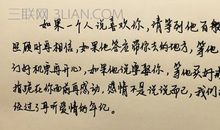 三联网 3LIAN.COM
如果一个人说喜欢你，请等到他百般
照顾时再相信，如果他答应带你去的地方，等他
订好机票再开心，如果他说要娶你，等他买好戒
指跪在你面前再感动，感情不是说说而已，我们
经过了耳听爱情的年纪。